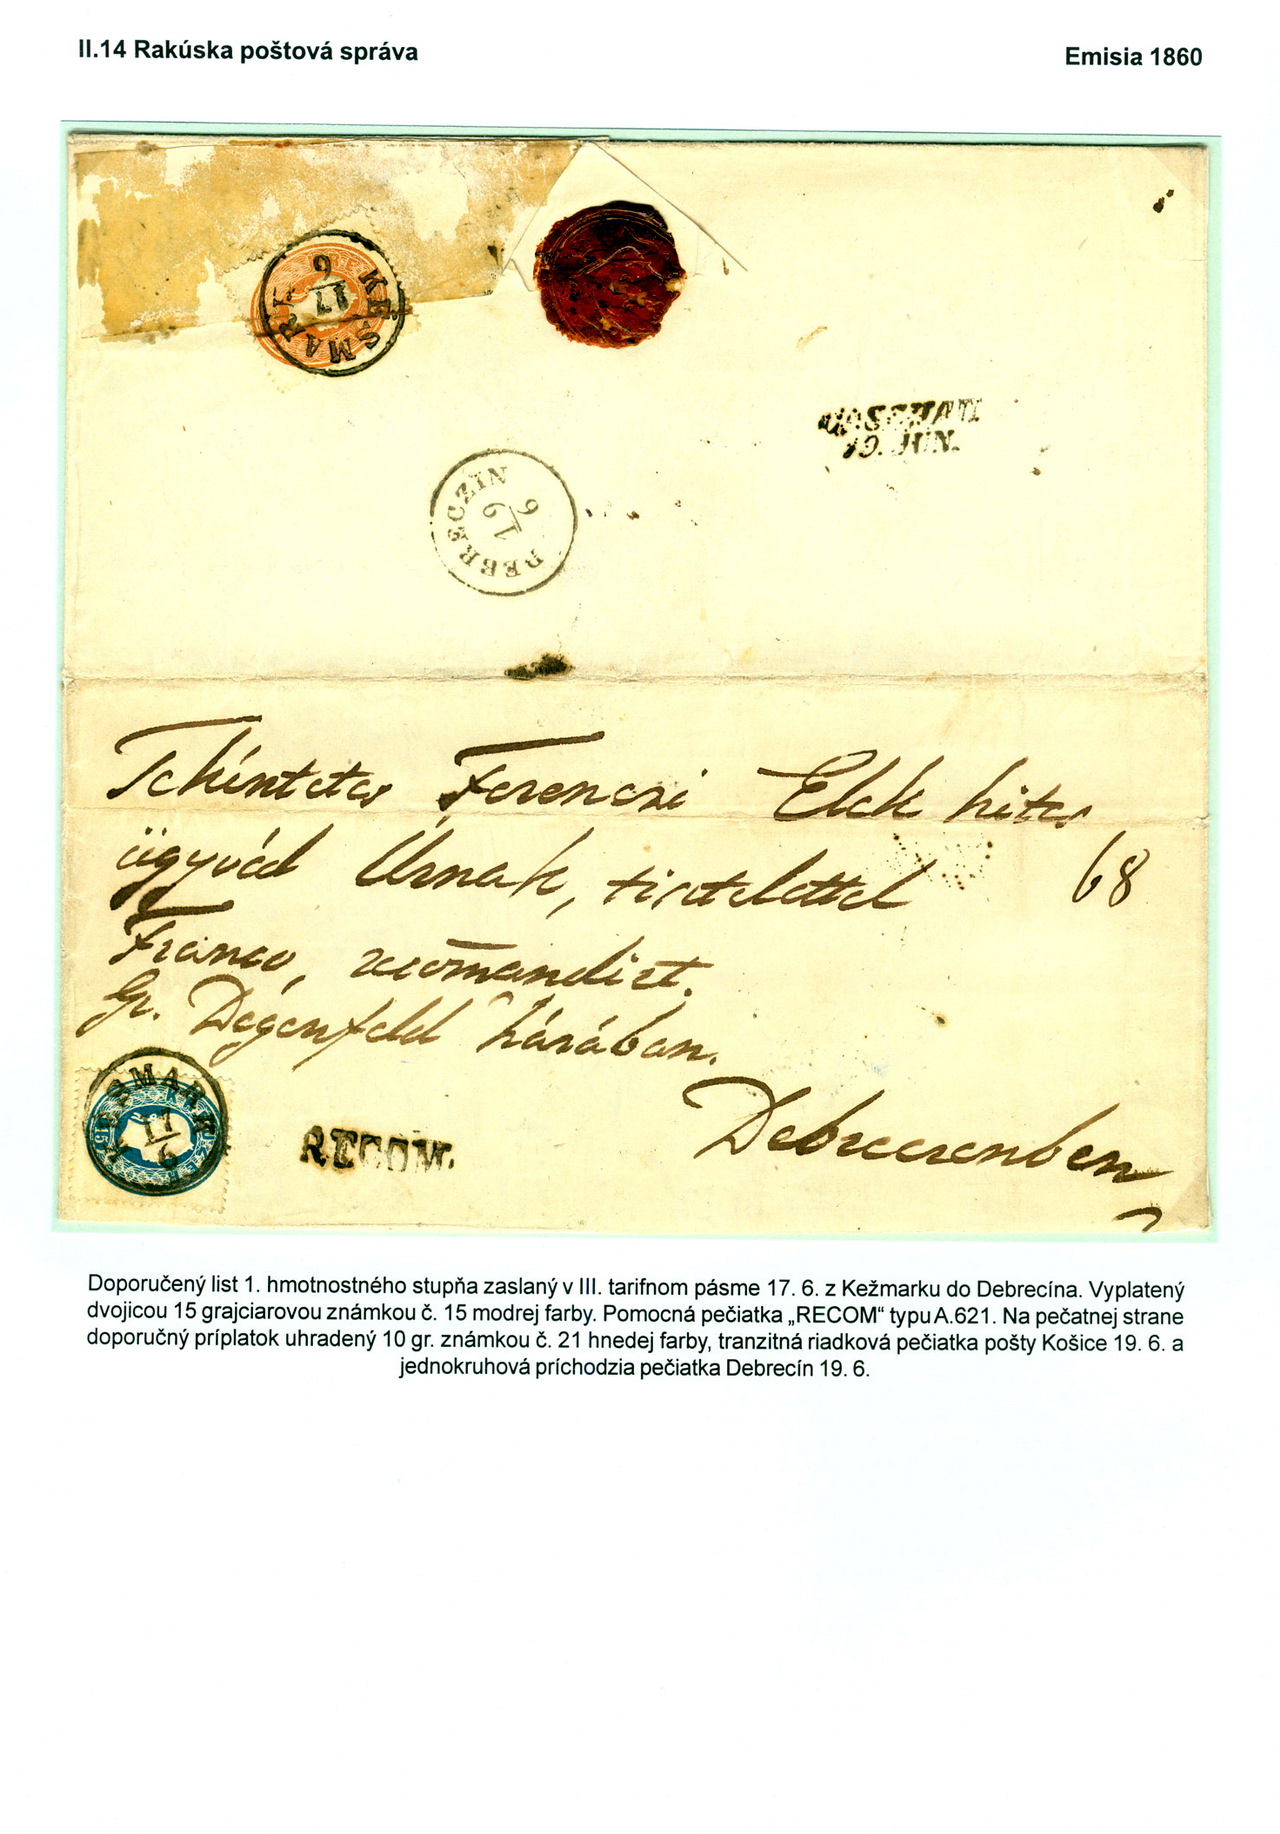 II.14 Rakúska poštová správa
Emisia 1860
KESMARK
17
6
KASCHAU
19. JUN.
DEBRECZIN
19
6
Tekintetes Ferenczi Elek hites
ügyvéd Úrnak, tisztelettel
68
Franco, recomandirt.
Gr. Degenfeld házában.
KESMARK
17
6
15
RECOM.
Debreczenben
Doporučený list 1. hmotnostného stupňa zaslaný v III. tarifnom pásme 17. 6. z Kežmarku do Debrecína. Vyplatený
dvojicou 15 grajciarovou známkou č. 15 modrej farby. Pomocná pečiatka „RECOM“ typu A.621. Na pečatnej strane
doporučný príplatok uhradený 10 gr. známkou č. 21 hnedej farby, tranzitná riadková pečiatka pošty Košice 19. 6. a
jednokruhová príchodzia pečiatka Debrecín 19. 6.